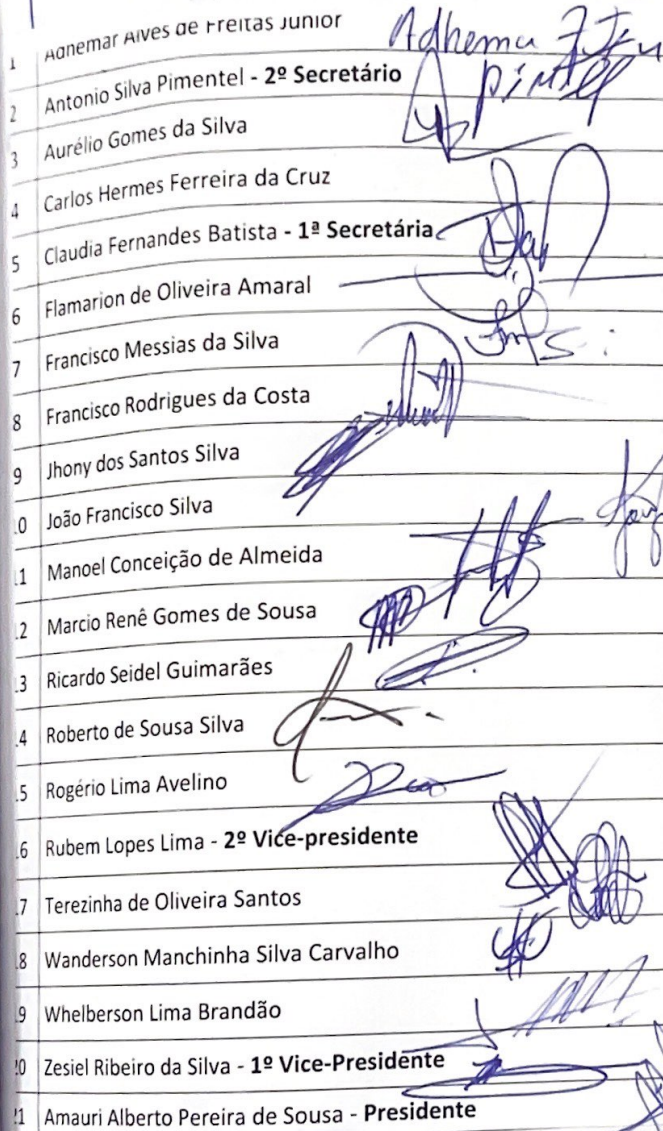 1 Adhemar Alves de Freitas Junior Adhema
2 Antonio Silva Pimentel - 2º Secretário
3 Aurélio Gomes da Silva
4 Carlos Hermes Ferreira da Cruz
5 Claudia Fernandes Batista - 1ª Secretária
6 Flamarion de Oliveira Amaral
7 Francisco Messias da Silva
8 Francisco Rodrigues da Costa
9 Jhony dos Santos Silva
10 João Francisco Silva
11 Manoel Conceição de Almeida
12 Marcio Renê Gomes de Sousa
13 Ricardo Seidel Guimarães
14 Roberto de Sousa Silva
15 Rogério Lima Avelino
16 Rubem Lopes Lima - 2º Vice-presidente
17 Terezinha de Oliveira Santos
18 Wanderson Manchinha Silva Carvalho
19 Whelberson Lima Brandão
20 Zesiel Ribeiro da Silva - 1º Vice-Presidente
21 Amauri Alberto Pereira de Sousa - Presidente